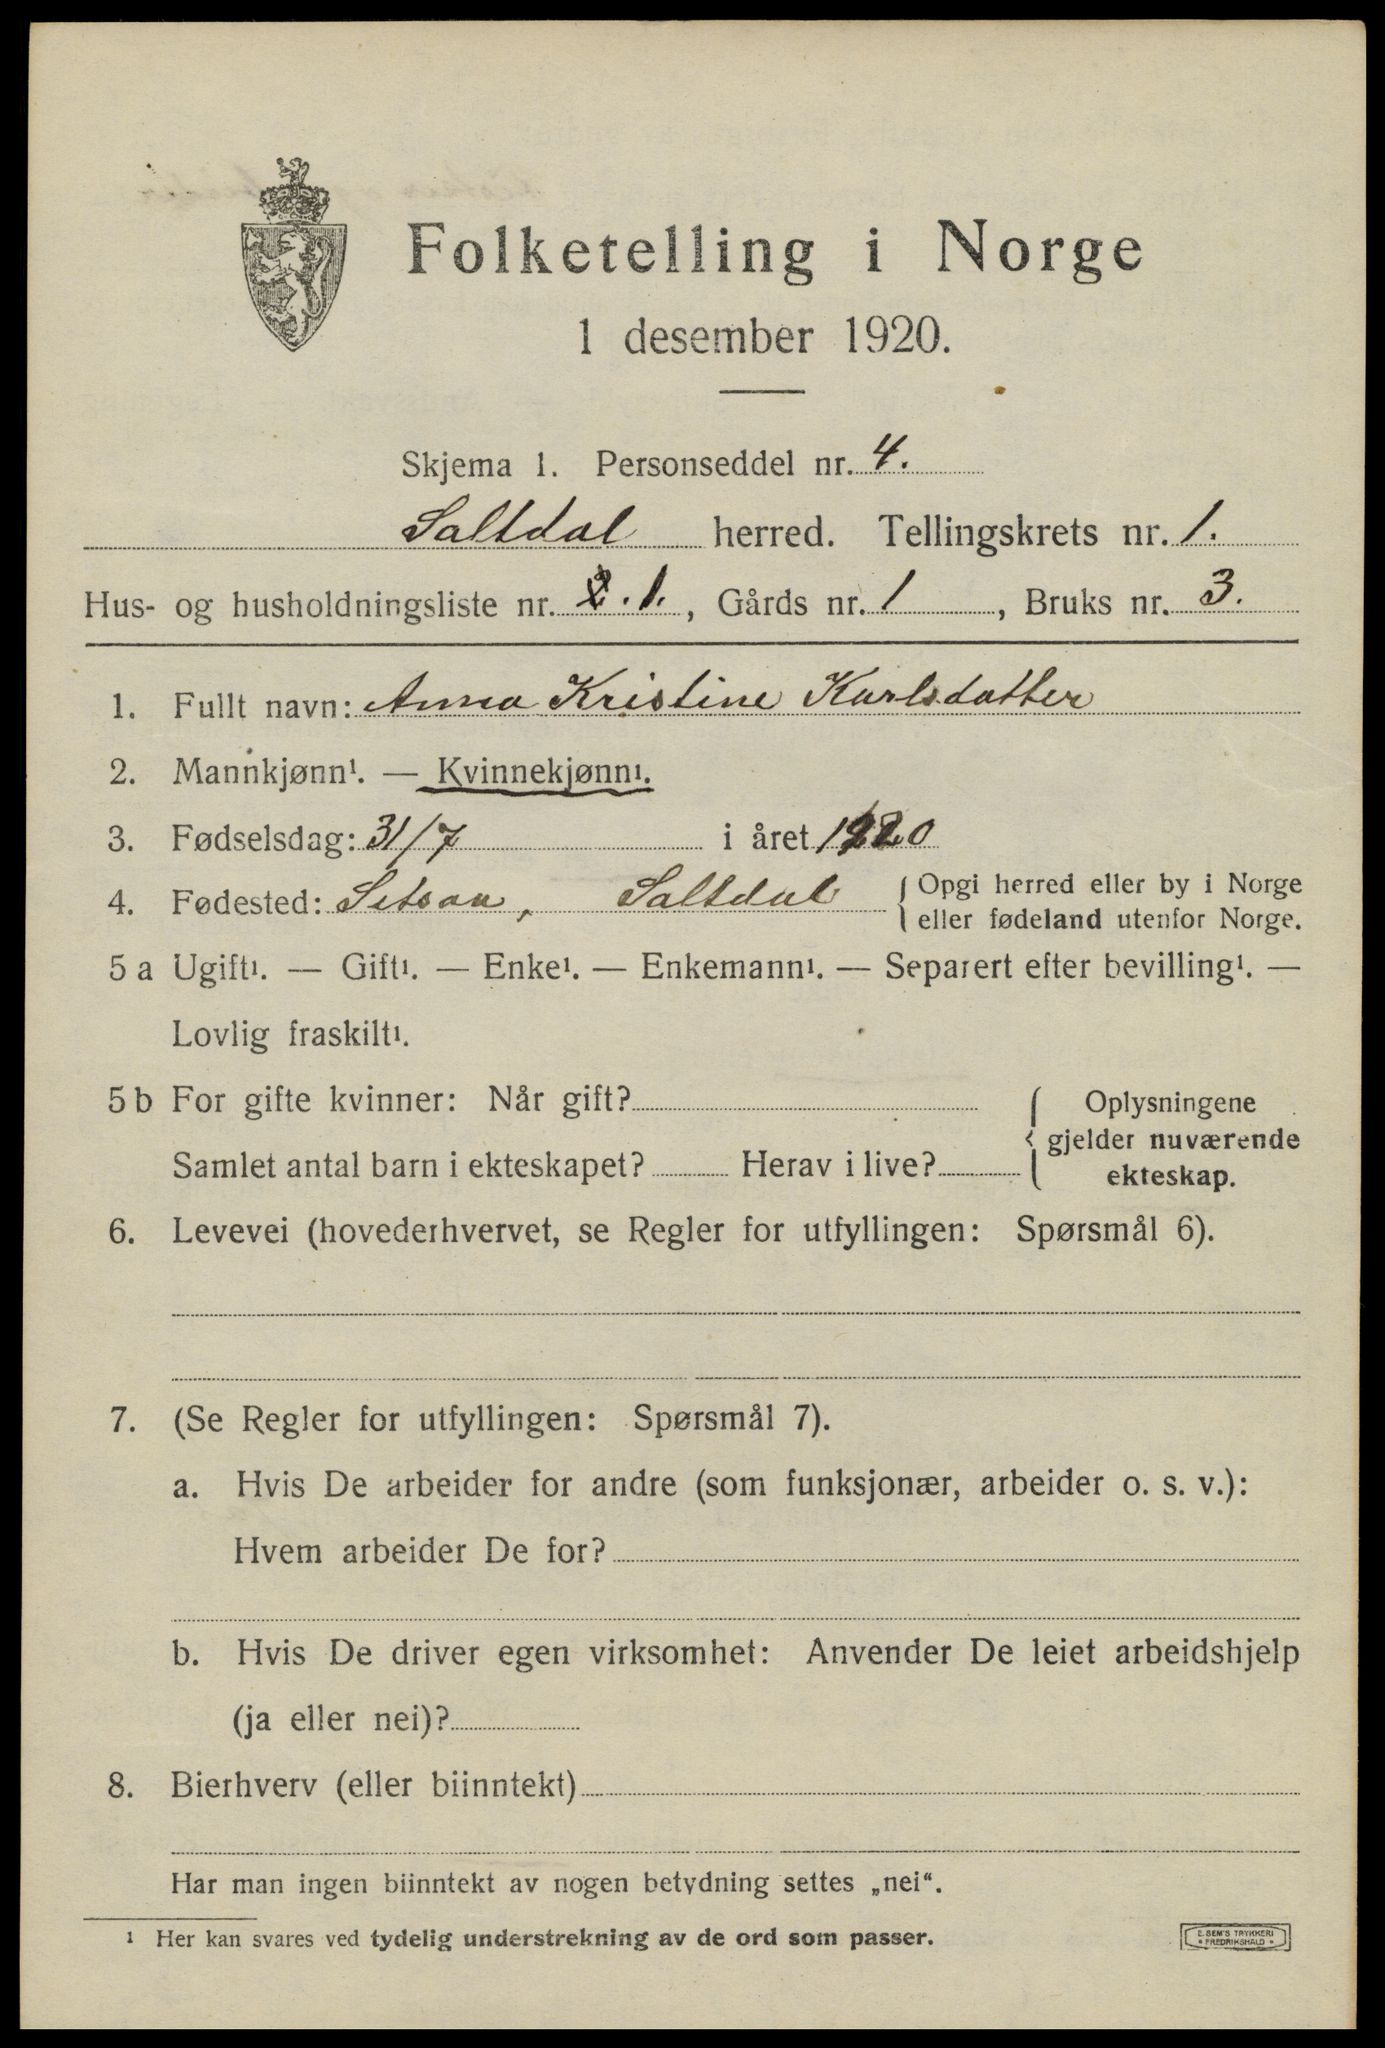 Folketelling i Norge
1 desember 1920.
Skjema 1. Personseddel nr. 4.
Saltdal herred. Tellingskrets nr. 1.
Hus- og husholdningsliste nr. 2. 1., Gårds nr. 1, Bruks nr. 3.
1. Fullt navn: Anna Kristine Karlsdatter
2. Mannkjønn¹. — Kvinnekjønn¹.
3. Fødselsdag: 31/7 i året 1920
4. Fødested: Setsaa, Saltdal { Opgi herred eller by i Norge
eller fødeland utenfor Norge.
5 a Ugift¹. — Gift¹. — Enke¹. — Enkemann¹. — Separert efter bevilling¹. —
Lovlig fraskilt¹.
5 b For gifte kvinner: Når gift?
Samlet antal barn i ekteskapet? Herav i live?
{ Oplysningene
gjelder nuværende
ekteskap.
6. Levevei (hovederhvervet, se Regler for utfyllingen: Spørsmål 6).
7. (Se Regler for utfyllingen: Spørsmål 7).
a. Hvis De arbeider for andre (som funksjonær, arbeider o. s. v.):
Hvem arbeider De for?
b. Hvis De driver egen virksomhet: Anvender De leiet arbeidshjelp
(ja eller nei)?
8. Bierhverv (eller biinntekt)
Har man ingen biinntekt av nogen betydning settes „nei“.
¹ Her kan svares ved tydelig understrekning av de ord som passer.
E. SEM'S TRYKKERI
• FREDRIKSHALD •